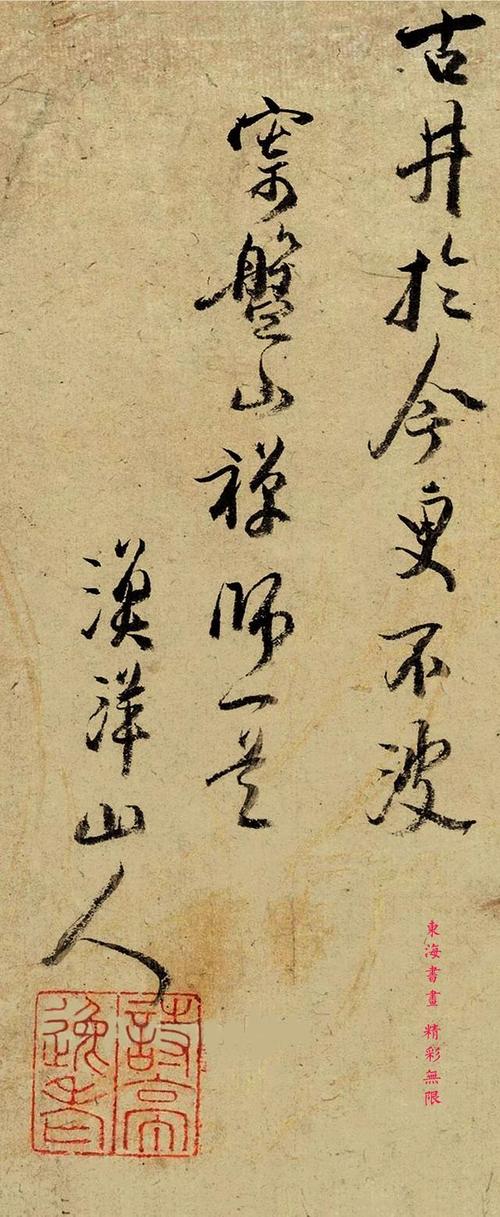 古井於今更不波
寄盤山禪師一
漁洋山人
詩亭
逸老
東海書畫 精彩無限